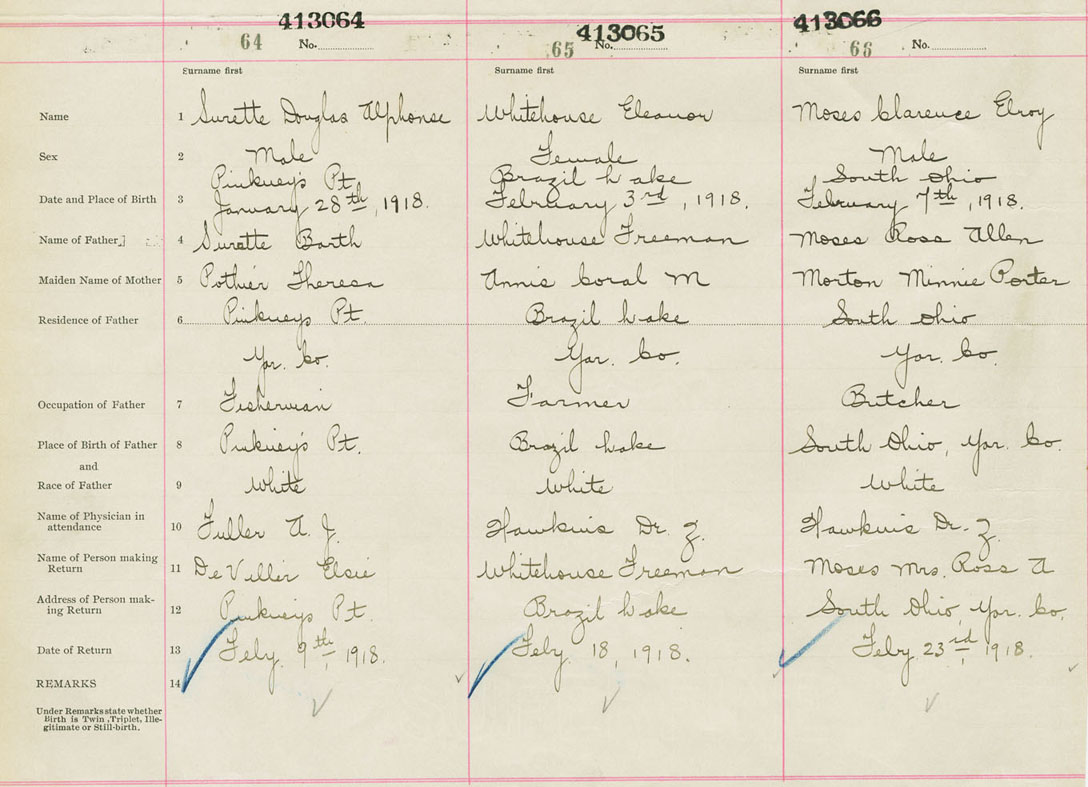 413064 413065 413066
64 No. 65 No. 66 No.
Surname first Surname first Surname first
Name 1 Surette Douglas Alphonse Whitehouse Eleanor Moses Clarence Elroy
Sex 2 Male Female Male
Pinkney's Pt. Brazil Lake South Ohio
Date and Place of Birth 3 January 28th, 1918. February 3rd, 1918. February 7th, 1918.
Name of Father 4 Surette Barth Whitehouse Freeman Moses Ross Allen
Maiden Name of Mother 5 Pothier Theresa Annis Coral M Morton Minnie Porter
Residence of Father 6 Pinkneys Pt. Brazil Lake South Ohio
Yar. Co. Yar. Co. Yar. Co.
Occupation of Father 7 Fisherman Farmer Butcher
Place of Birth of Father 8 Pinkney's Pt. Brazil Lake South Ohio, Yar. Co.
and
Race of Father 9 White White White
Name of Physician in
attendance 10 Fuller A. J. Hawkins Dr. Z. Hawkins Dr. Z.
Name of Person making
Return 11 DeViller Elsie Whitehouse Freeman Moses Mrs. Ross A
Address of Person mak-
ing Return 12 Pinkneys Pt. Brazil Lake South Ohio, Yar. Co.
Date of Return 13 Feby. 9th, 1918. Feby. 18, 1918. Feby. 23rd, 1918.
REMARKS 14
Under Remarks state whether
Birth is Twin, Triplet, Ille-
gitimate or Still-birth.